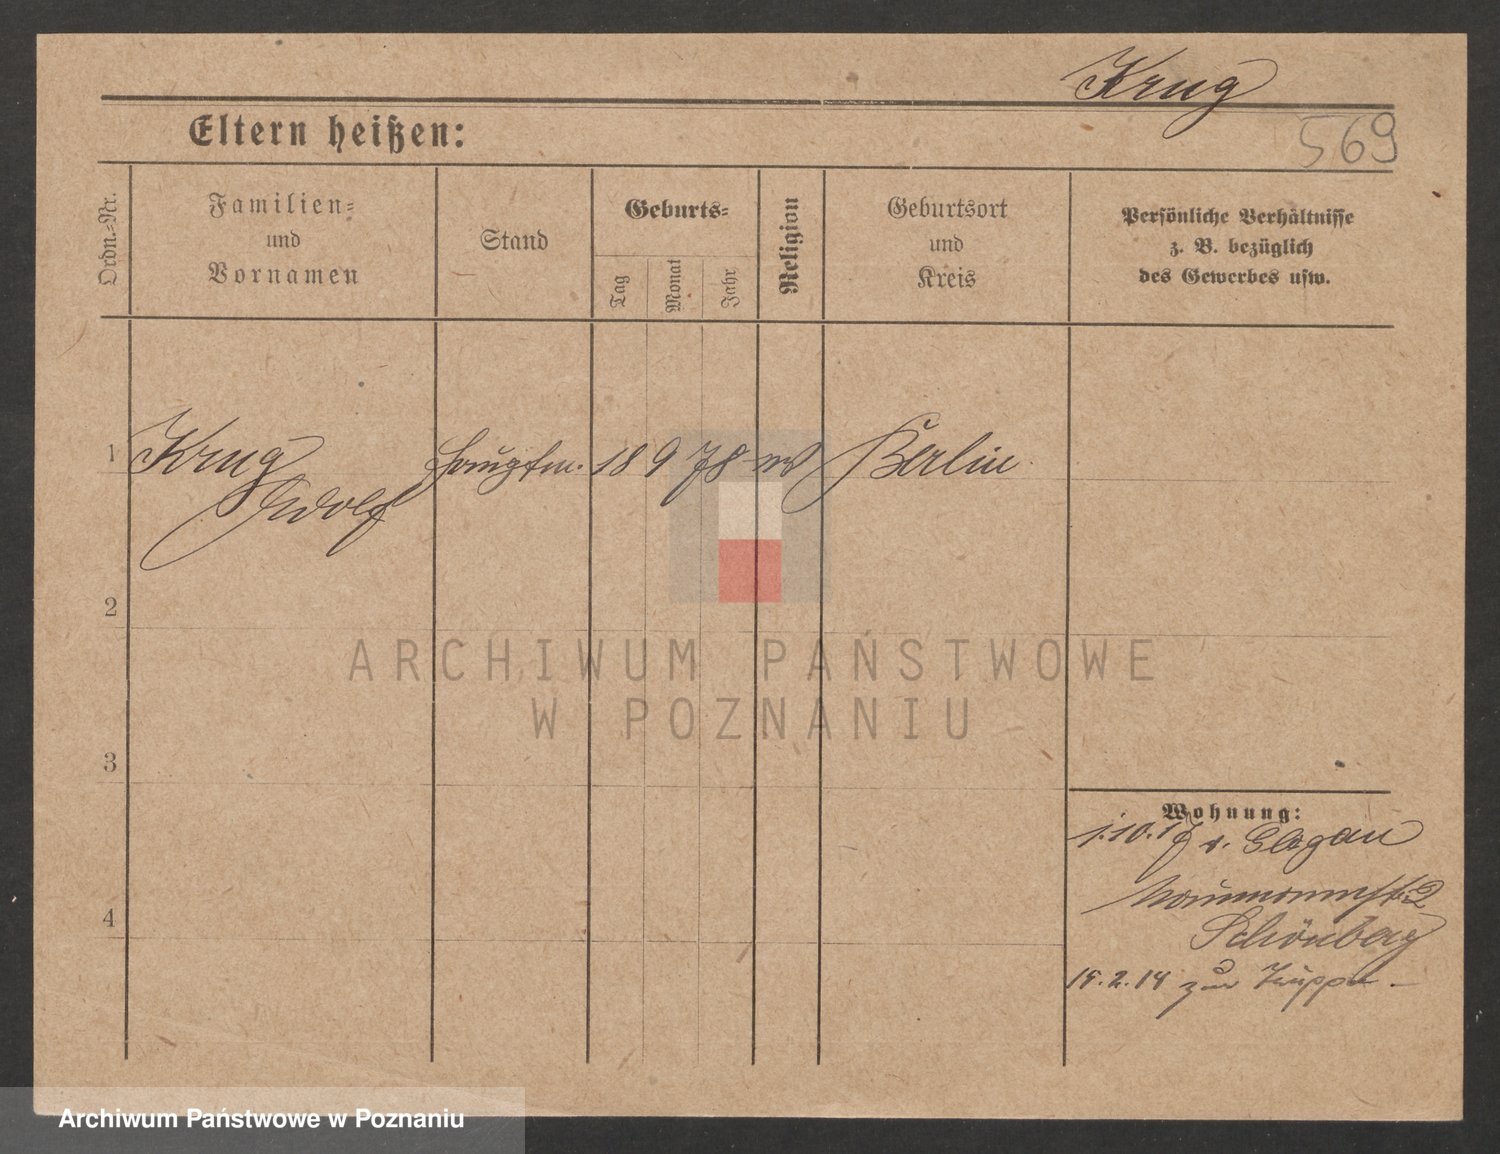 Krug
569
Eltern heißen:
Ordn.-Nr.
Familien-
und
Vornamen
Stand
Geburts-
Tag
Monat
Jahr
Religion
Geburtsort
und
Kreis
Persönliche Verhältnisse
z. B. bezüglich
des Gewerbes usw.
1 Krug Hauptm. 18 9 78 Berlin
Adolf
2
3
4
Wohnung:
1.10.17 v. Glogau
Naumannstr. 2
Schönberg
zur Truppe
ARCHIWUM PAŃSTWOWE
W POZNANIU
Archiwum Państwowe w Poznaniu